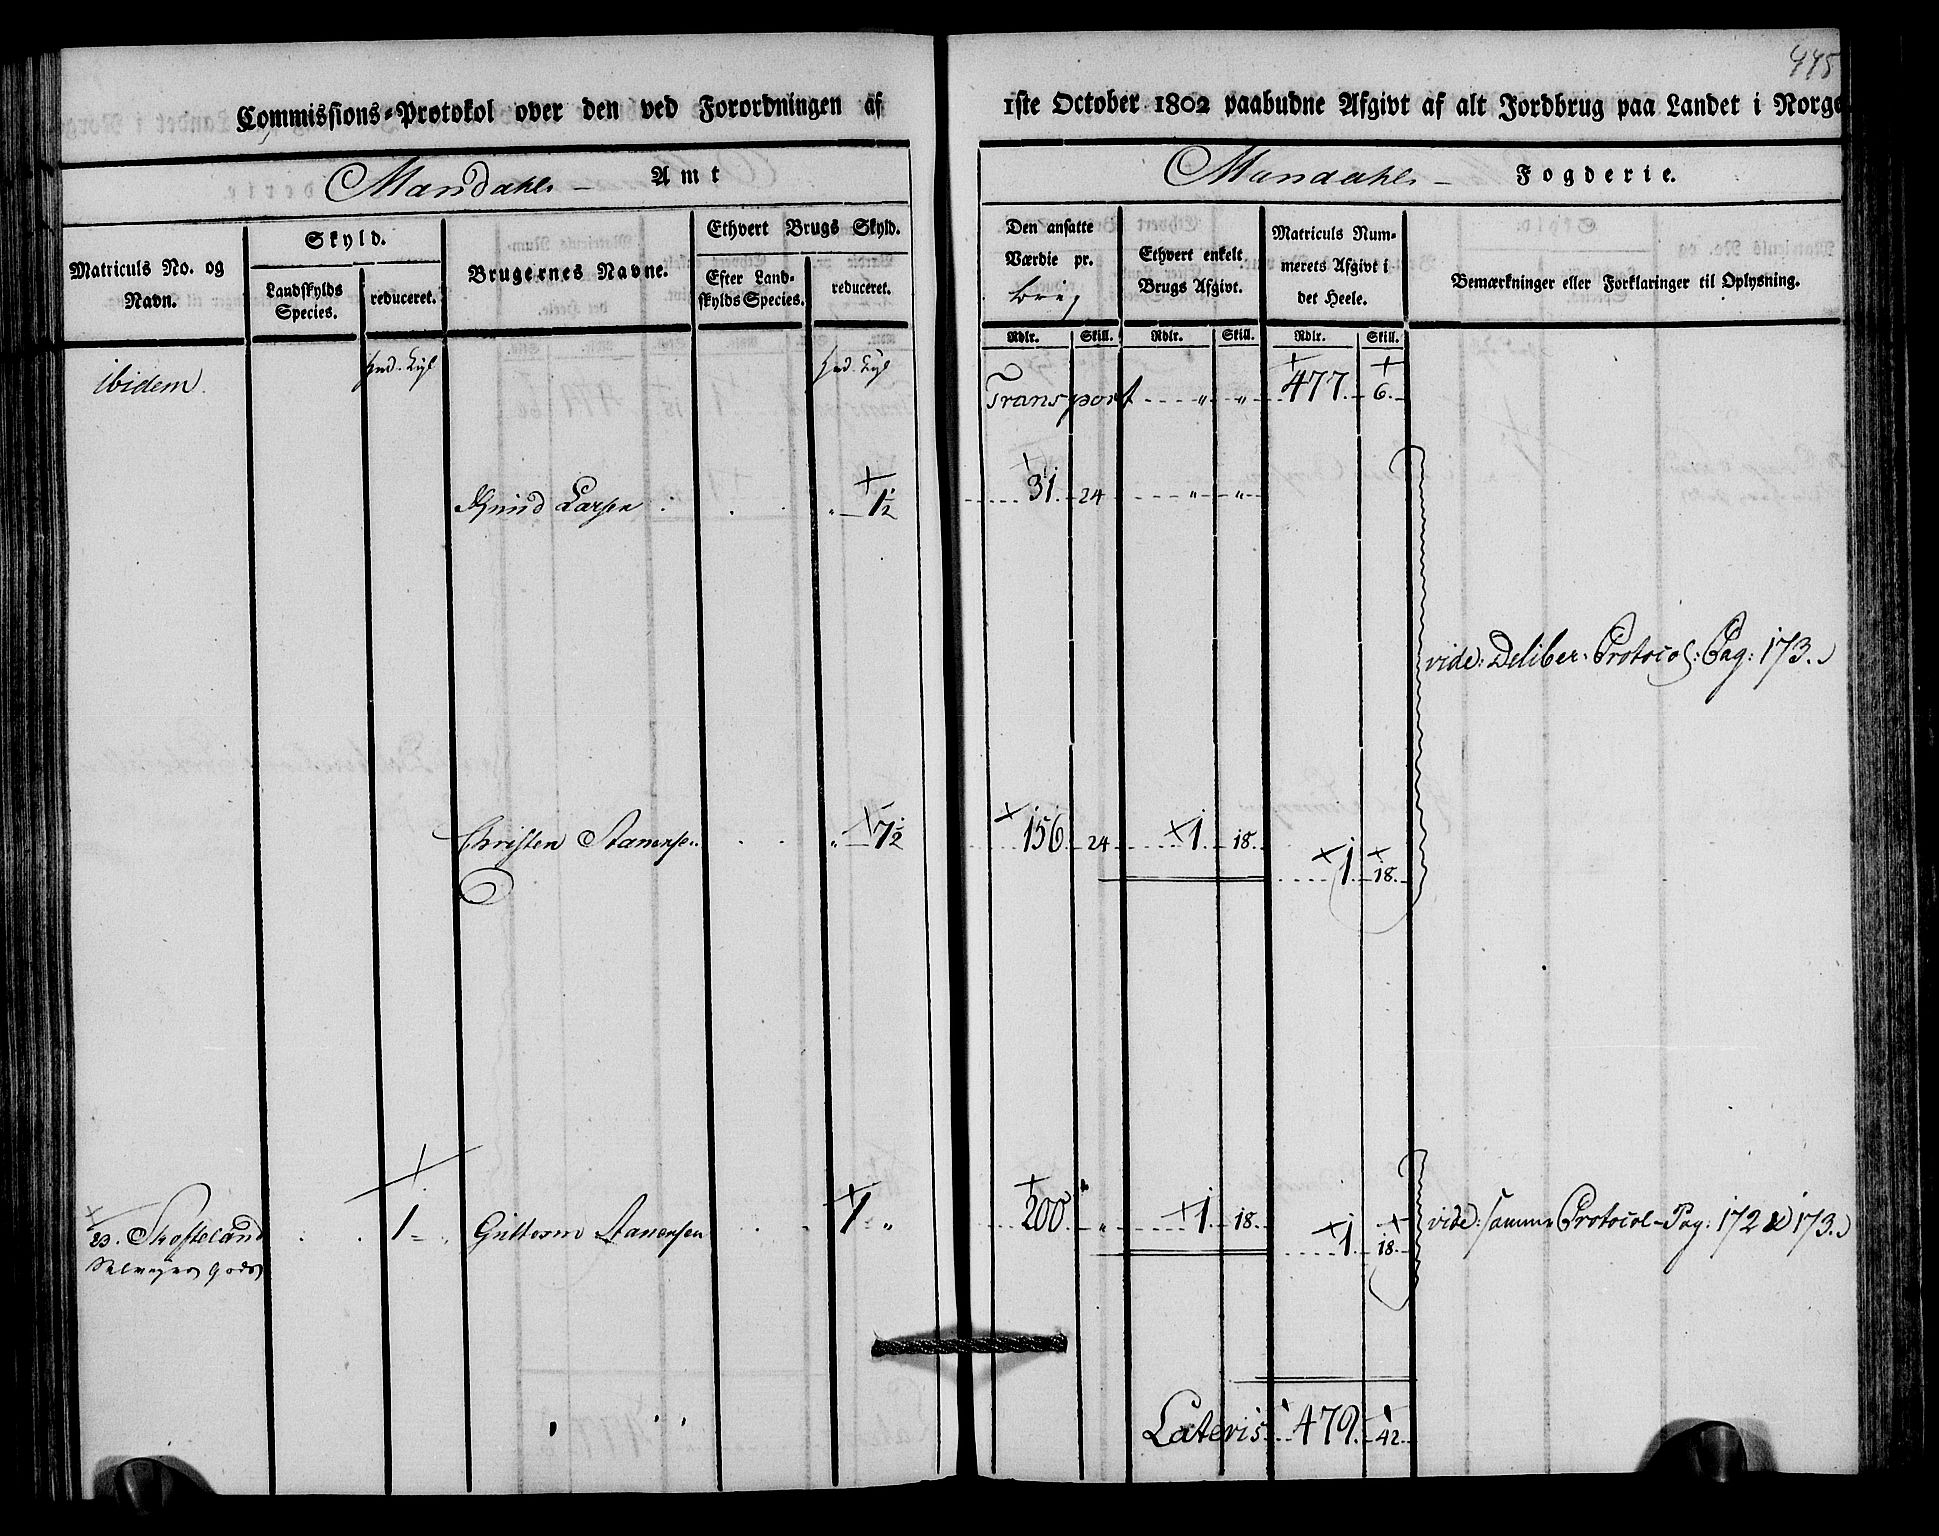 445
Commissions-Protokol over den ved Forordningen af 1ste October 1802 paabudne Afgivt af alt Jordbrug paa Landet i Norge
Mandahls Amt
Mandahls Fogderie.
Matriculs No. og Navn.
Skyld.
Landskylds Species.
reduceret.
Brugernes Navne.
Ethvert Brugs Skyld.
Efter Landskylds Species.
reduceret.
Den ansatte Værdie pr.
Ethvert enkelt Brugs Afgivt.
Matriculs Nummerets Afgivt i det Heele.
Bemærkninger eller Forklaringer til Oplysning.
Rdlr. Skill. Rdlr. Skill. Rdlr. Skill.
ibidem.
Transport " " 477. 6.
Larsen " 1½ 31. 24 " "
vide: Deliber. Protocol: Pag: 173.
Christen Stanersen " 7½ 156. 24 1. 18.
1. 18.
23. Skofteland 1 " Guttorm Stanersen 1 " 200. " 1. 18.
1. 18.
vide: samme Protocol Pag: 172 & 173.
Selveyer Gods
Lateris 479. 42.